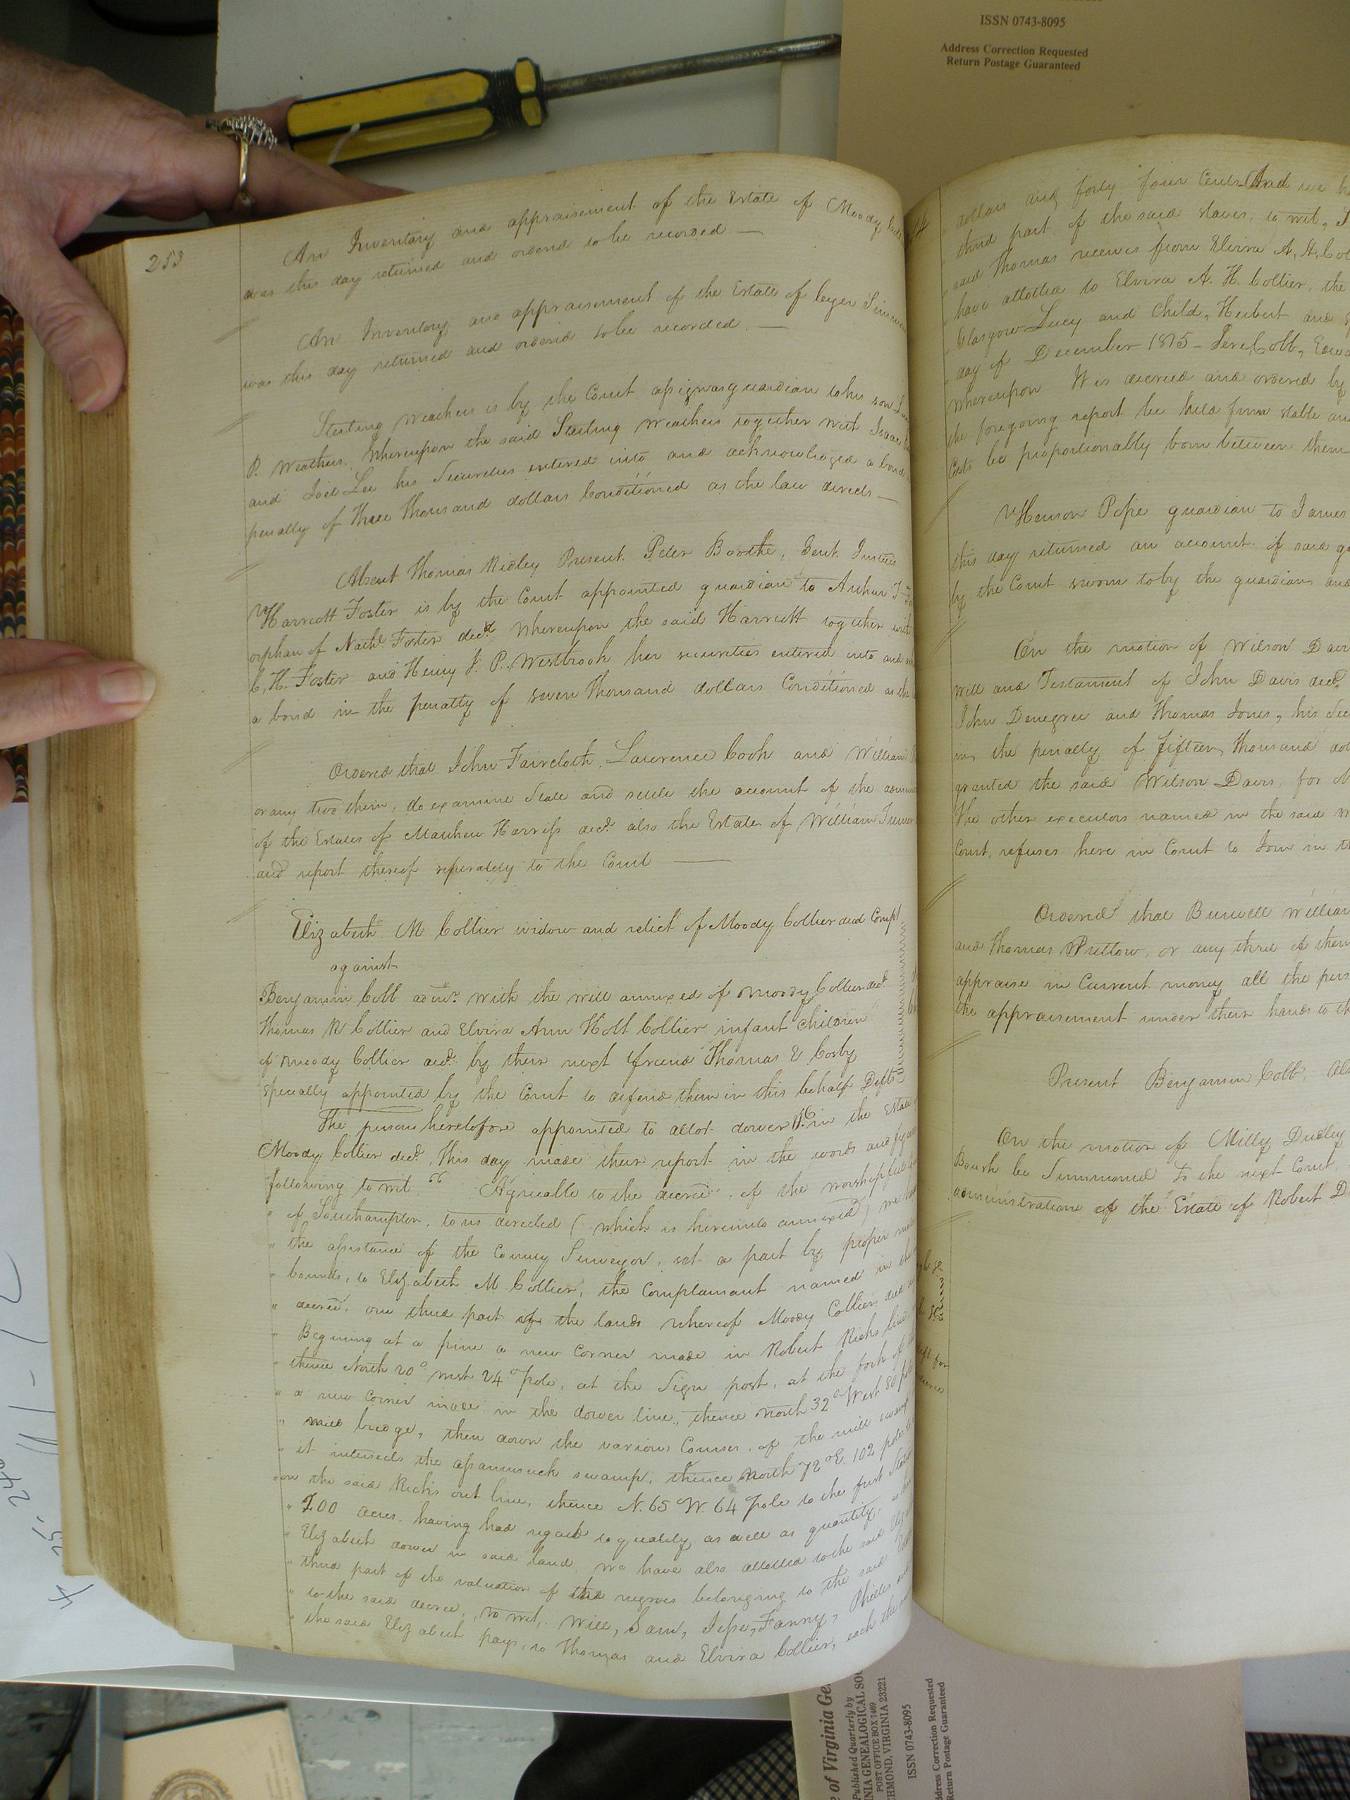 ISSN 0743-8095
Address Correction Requested
Return Postage Guaranteed
253
An Inventory and appraisement of the Estate of Moody
was this day returned and ordered to be recorded —
An Inventory and appraisement of the Estate of
was this day returned and ordered to be recorded. —
Sterling Weathers is by the Court assigned guardian to his son
P. Weathers. Whereupon the said Sterling Weathers together with Isaac
and Joel Lee his Securities entered into and acknowledged a bond
penalty of three thousand dollars Conditioned as the law directs —
Absent Thomas Ridley Present Peter Boothe, Gent. Justices
Harriott Foster is by the Court appointed guardian to Arthur
orphan of Nathl Foster decd. Whereupon the said Harriott together with
C. H. Foster and Henry J. P. Westbrook her securities entered into and
a bond in the penalty of seven thousand dollars Conditioned as the
Ordered that John Faircloth, Lawrence Cook and William
or any two them, do examine State and settle the account of the
of the Estates of Mathew Harriss decd. also the Estate of William Turner
and report thereof seperately to the Court —
Elizabeth M Collier widow and relict of Moody Collier decd Compl
against
Benjamin Cobb admr. with the will annexed of Moody Collier decd.
Thomas R Collier and Elvira Ann Holt Collier infant children
of Moody Collier decd. by their next friend Thomas E Cosby
specially appointed by the Court to defend them in this behalf Defts
The persons heretofore appointed to allot dower in the Estate
Moody Collier decd. this day made their report in the words and
following to wit " Agreeable to the decree, of the worshipful
" of Southampton, to us directed (which is hereunto annexed) we
" the assistance of the County Surveyor, set a part by proper
" bounds, to Elizabeth M Collier, the Complainant named in
" decree, one third part of the lands whereof Moody Collier died
" Begining at a pine a new corner made in Robert Ricks line
" thence North 20° west 24 pole, at the Sign post, at the fork of
" a new Corner made in the dower line, thence North 32° West 80
" mill bridge, then down the various Courses, of the mill swamp
" it intersects the assamoosick swamp, thence North 72° E. 102 pole
" on the said Ricks out line, thence N. 65 W. 64 pole to the first Station
" 200 acres. having had regard to quality as well as quantity,
" Elizabeth dower in said land, we have also allotted to the said
" third part of the valuation of the negroes belonging to the said
" to the said decree, to wit, Will, Sam, Jesse, Fanny, Phillis
" the said Elizabeth pays, to Thomas and Elvira Collier, each the
dollars and forty four Cents And we
third part of the said slaves, to wit,
said Thomas receives from Elvira A. H. Col
have allotted to Elvira A. H. Collier, the
Glasgow Lucy and Child, Herbert and
day of December 1815 — Jere. Cobb,
Whereupon It is decreed and ordered by
the foregoing report be held firm stable and
Costs be proportionably born between them
Henson Pope guardian to James
this day returned an account of said
by the Court sworn to by the guardian and
On the motion of Wilson Davis
will and Testament of John Davis decd.
John Denegree and Thomas Jones, his
in the penalty of fifteen thousand
granted the said Wilson Davis, for
the other executors named in the said
Court, refuses here in Court to Join in
Ordered that Burwell William
and Thomas Pretlow, or any three of them
appraise in Current money all the
the appraisement under their hands to
Present Benjamin Cobb
On the motion of Milly Dudley
be Summoned To the next Court
administration of the Estate of Robert
Published Quarterly by
POST OFFICE BOX 7469
VIRGINIA 23221
ISSN 0743-8095